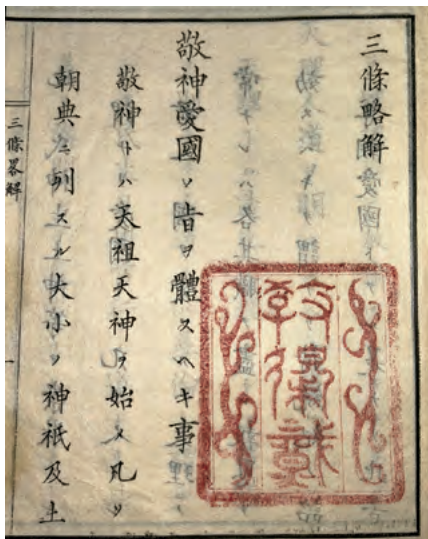 三條略解
敬神愛國ノ旨ヲ體スヘキ事
敬神トハ天祖天神ヲ始メ凡ソ
朝典ニ列スル大小ノ神祇及土
三條畧解
一